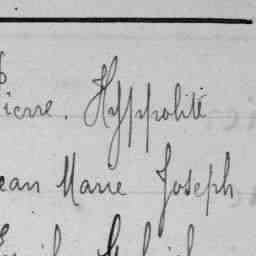 ierre. Hyppolite
ean Marie Joseph